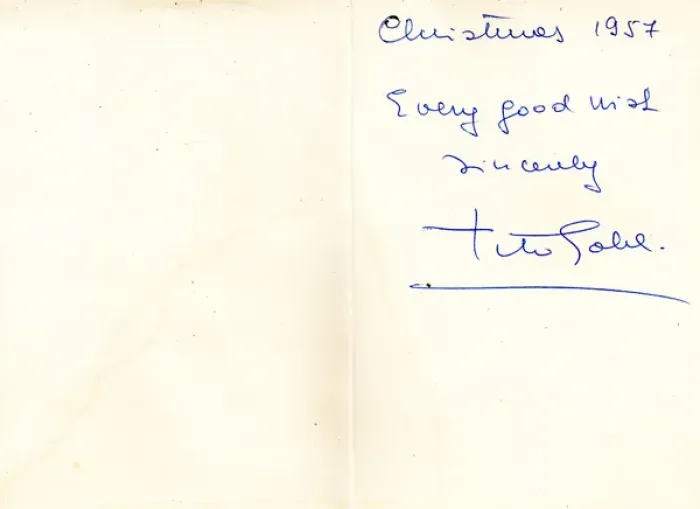 Christmas 1957
Every good wish
sincerely
Tito Gobbi.